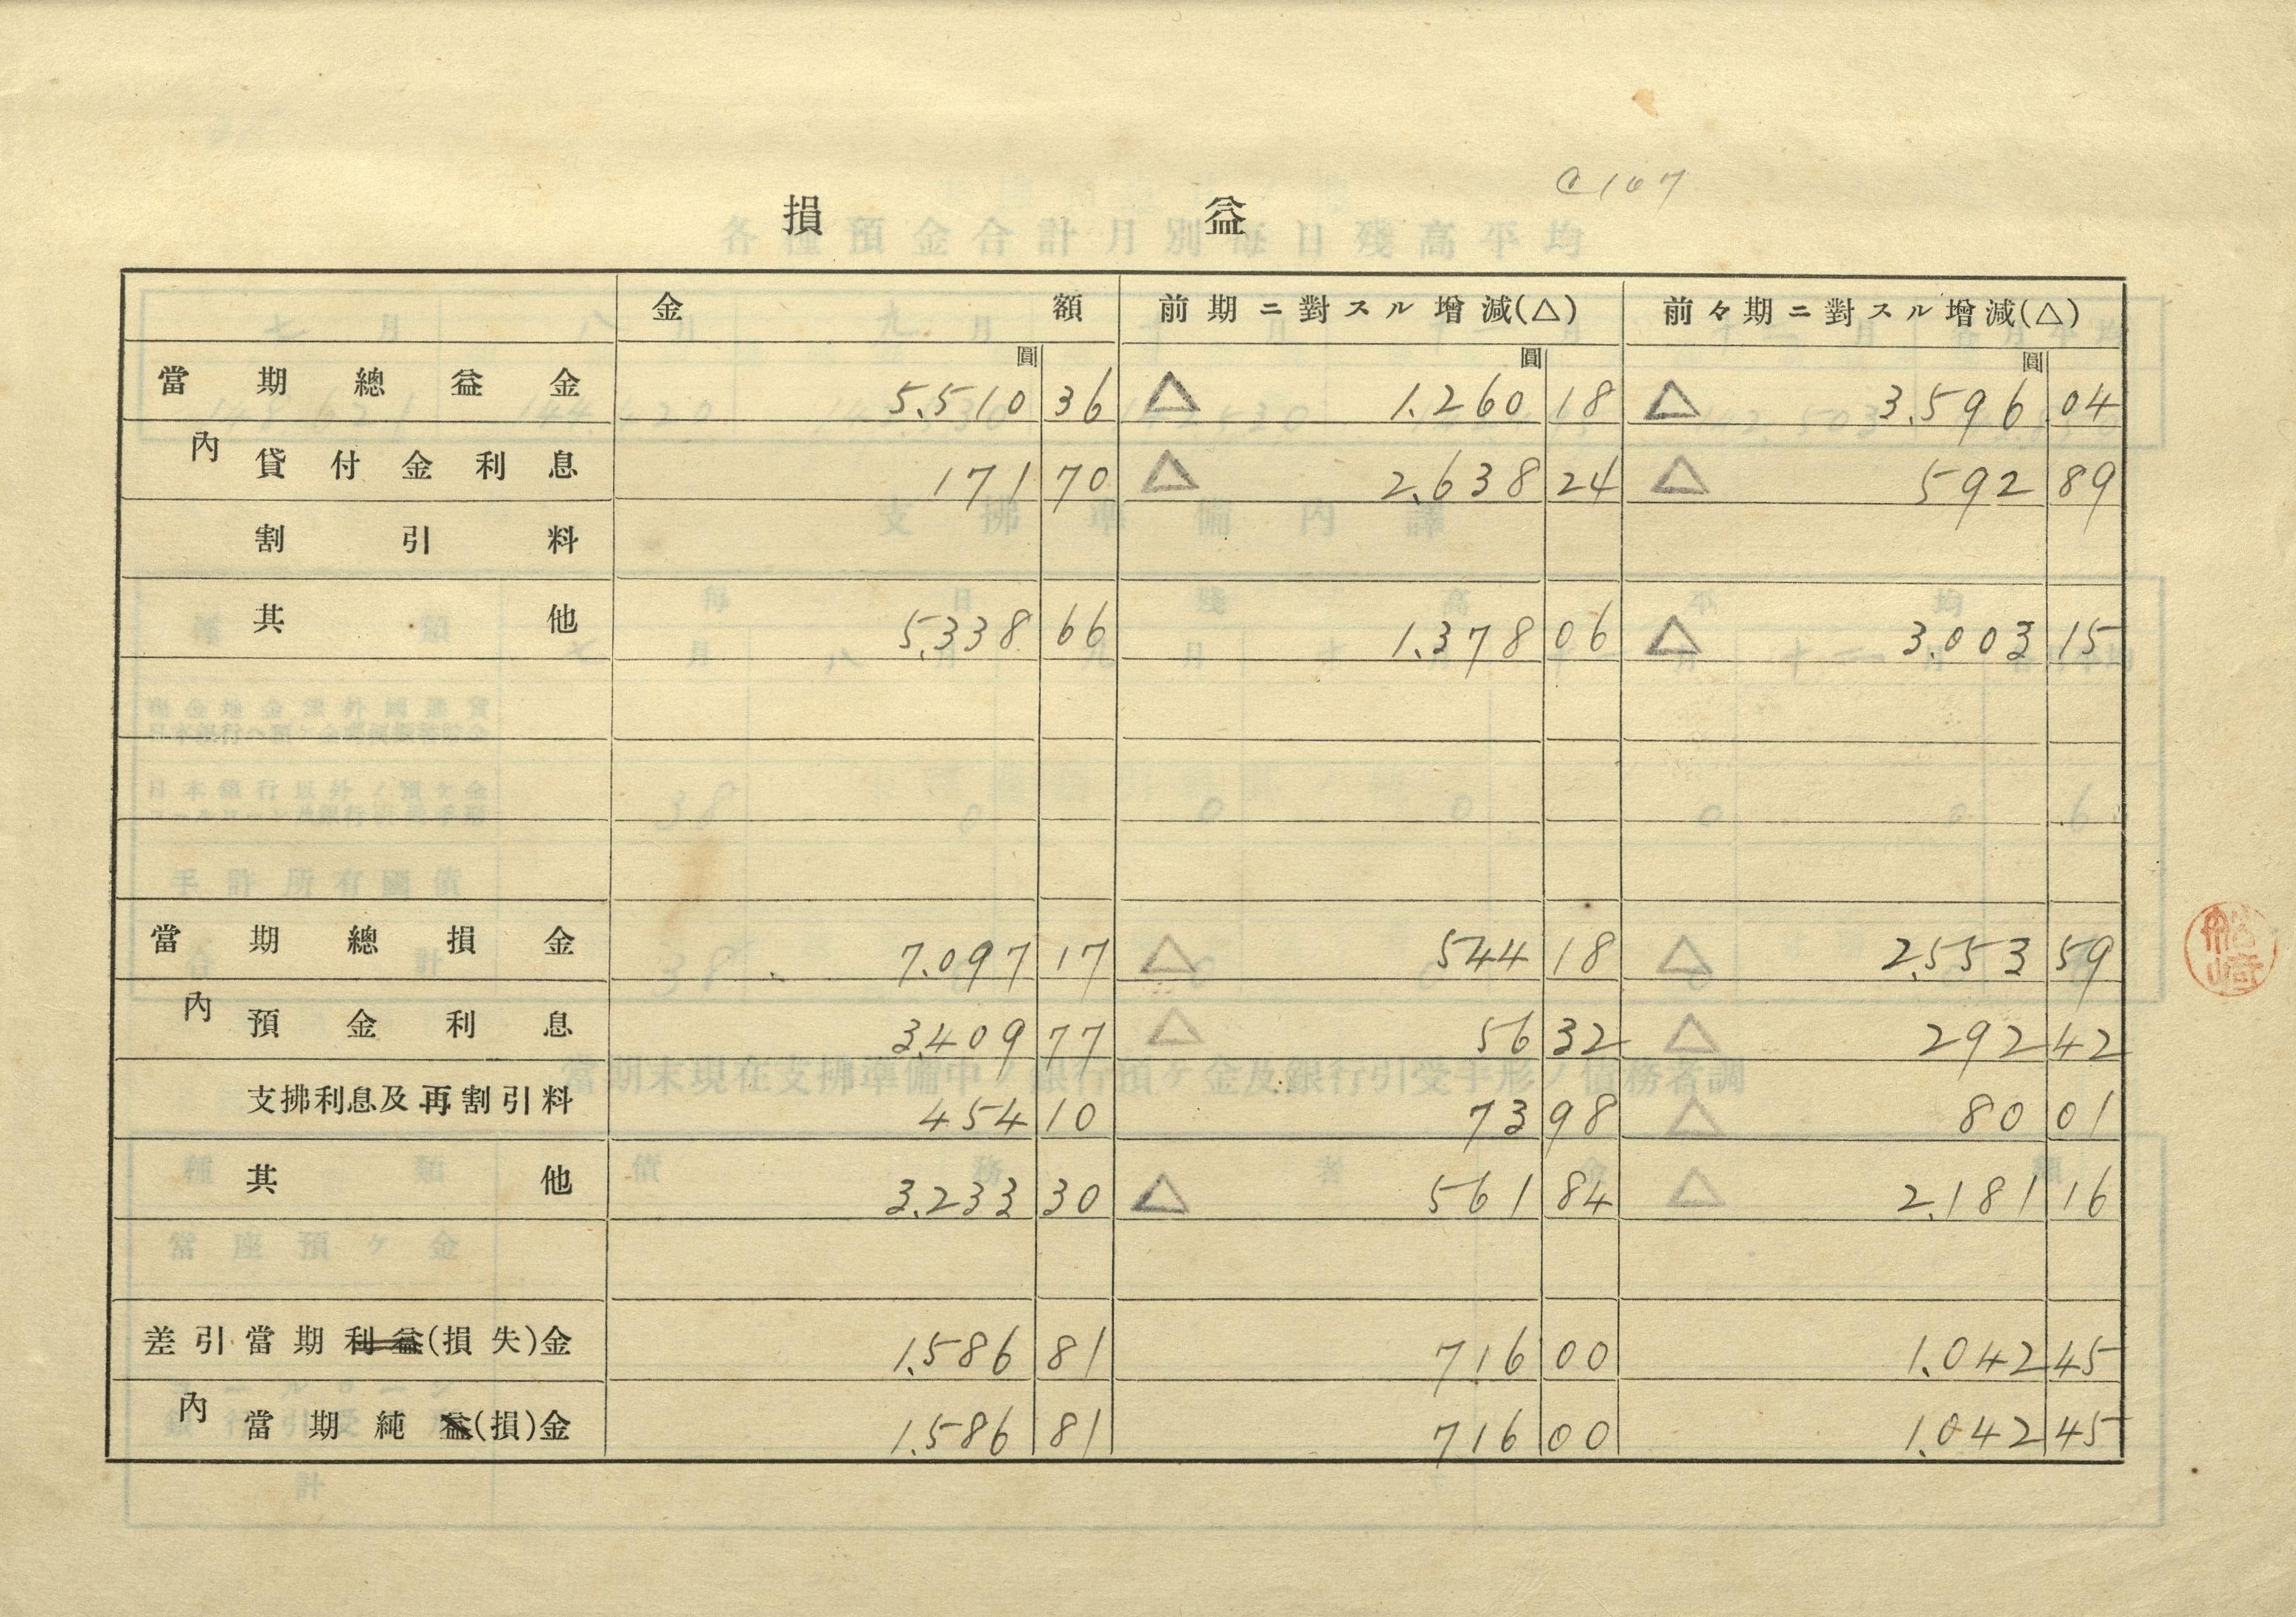 C107
損益
金額 前期ニ對スル增減(△) 前々期ニ對スル增減(△)
圓 圓 圓
當期總益金 5.510 36 △ 1.260 18 △ 3.596 04
內 貸付金利息 171 70 △ 2.638 24 △ 592 89
割引料
其他 5.338 66 1.378 06 △ 3.003 15
當期總損金 7.097 17 △ 544 18 △ 2.553 59
內 預金利息 3.409 77 △ 56 32 △ 292 42
支拂利息及再割引料 454 10 73 98 △ 80 01
其他 3.233 30 △ 561 84 △ 2.181 16
差引當期利益(損失)金 1.586 81 716 00 1.042 45
內 當期純益(損)金 1.586 81 716 00 1.042 45